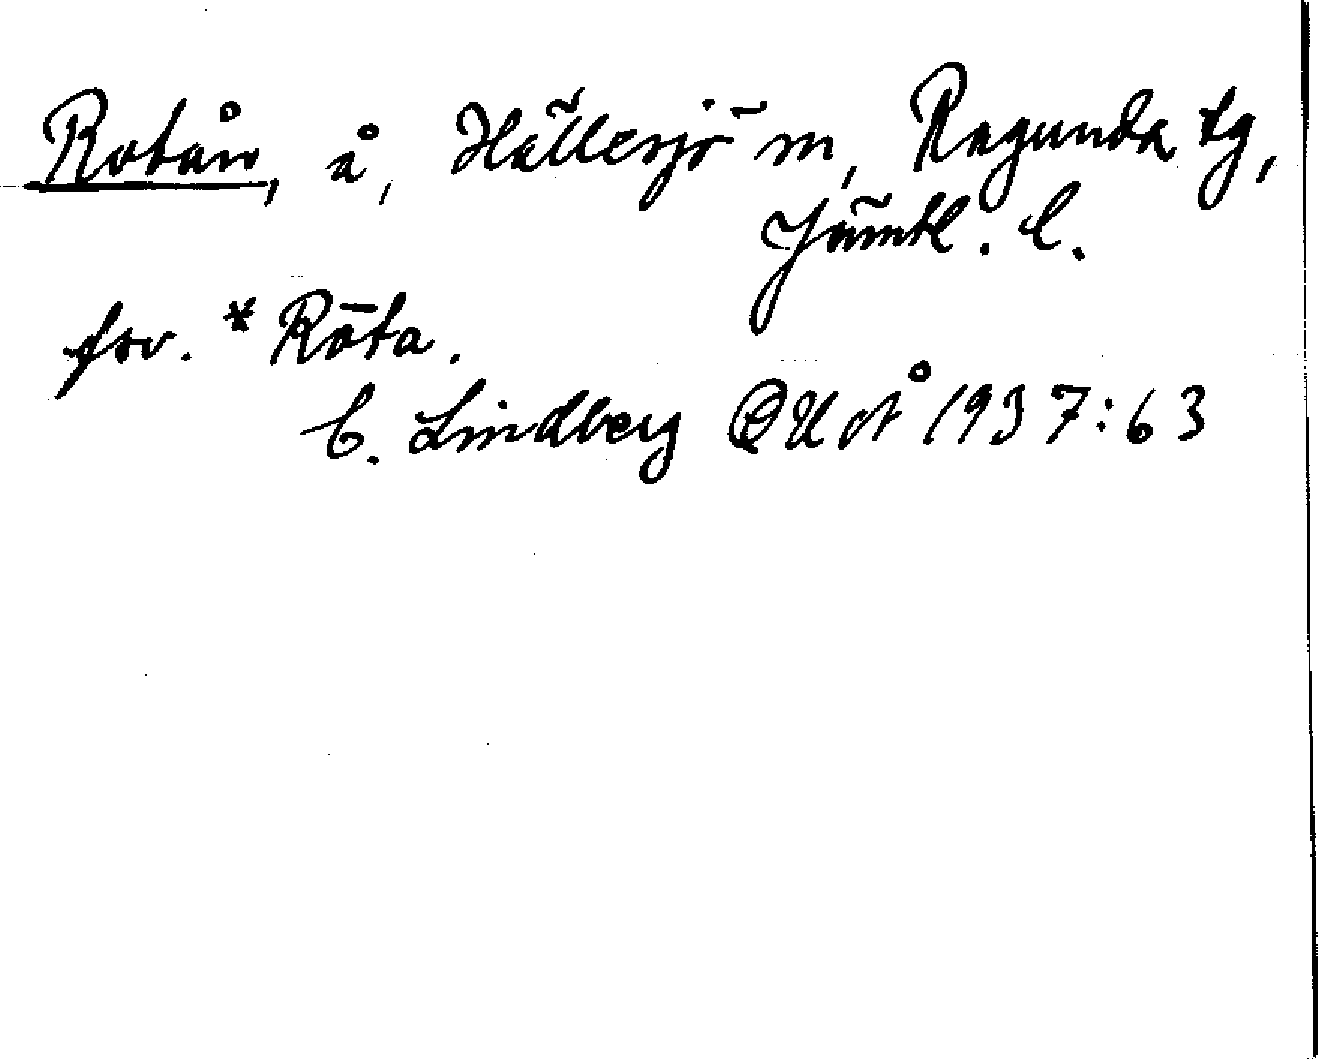 Rotån, å, Hällesjö sn, Ragunda tg,
Jämtl. l.
fsv. *Rōta.
C. Lindberg OUÅ 1937:63